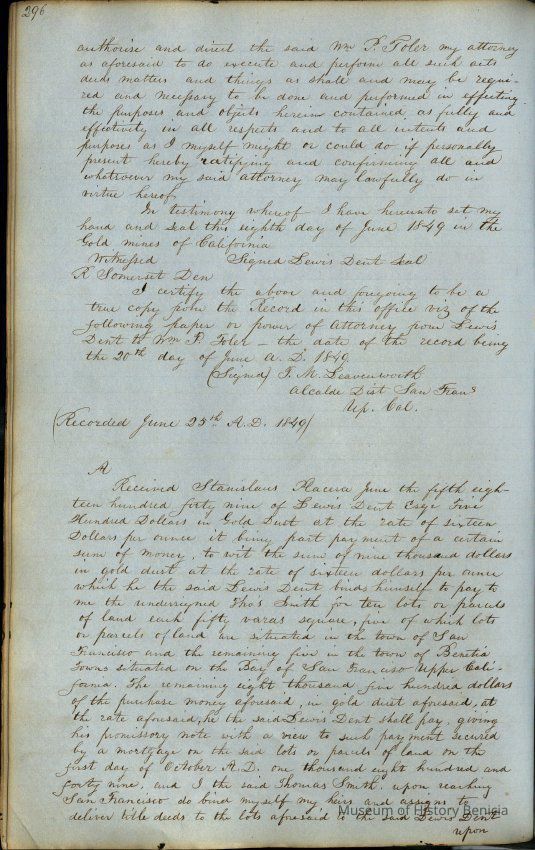 296
authorise and direct the said Wm P. Toler my attorney
as aforesaid to do execute and perform all such acts
deeds matters and things as shall and may be requi-
red and necessary to be done and performed in effecting
the purposes and objects herein contained as fully and
effectively in all respects and to all intents and
purposes as I myself might or could do if personally
present hereby ratifying and confirming all and
whatsoever my said attorney may lawfully do in
virtue hereof
In testimony whereof I have hereunto set my
hand and seal this eighth day of June 1849 in the
Gold mines of California
Witnessed Signed Lewis Dent Seal
R Somerset Den
I certify the above and foregoing to be a
true copy from the Record in this office viz of the
following paper or power of Attorney from Lewis
Dent to Wm P. Toler – the date of the record being
the 20th day of June A. D. 1849
(Signed) T. M. Leavenworth
Alcalde Dist San Frans
Up. Cal.
(Recorded June 25th A.D. 1849)
A
Received Stanislaus Placera June the fifth eigh-
teen hundred forty nine of Lewis Dent Esqr Five
Hundred Dollars in Gold Dust at the rate of sixteen
Dollars per ounce it being part payment of a certain
sum of money, to wit the sum of nine thousand dollars
in gold dust at the rate of sixteen dollars per ounce
which he the said Lewis Dent binds himself to pay to
me the undersigned Thos Smith for ten lots or parcels
of land each fifty varas square, five of which lots
or parcels of land are situated in the town of San
Francisco and the remaining five in the town of Benetia
towns situated on the Bay of San Francisco Upper Cali-
fornia. The remaining eight thousand, five hundred dollars
of the purchase money aforesaid, in gold dust aforesaid, at
the rate aforesaid, he the said Lewis Dent shall pay, giving
his promissory note with a view to such payment secured
by a mortgage on the said lots or parcels of land on the
first day of October A.D. one thousand eight hundred and
forty nine, and I the said Thomas Smith, upon reaching
San Francisco do bind myself my heirs and assigns to
deliver title deeds to the lots aforesaid to the said Lewis Dent
upon
Museum of History Benicia